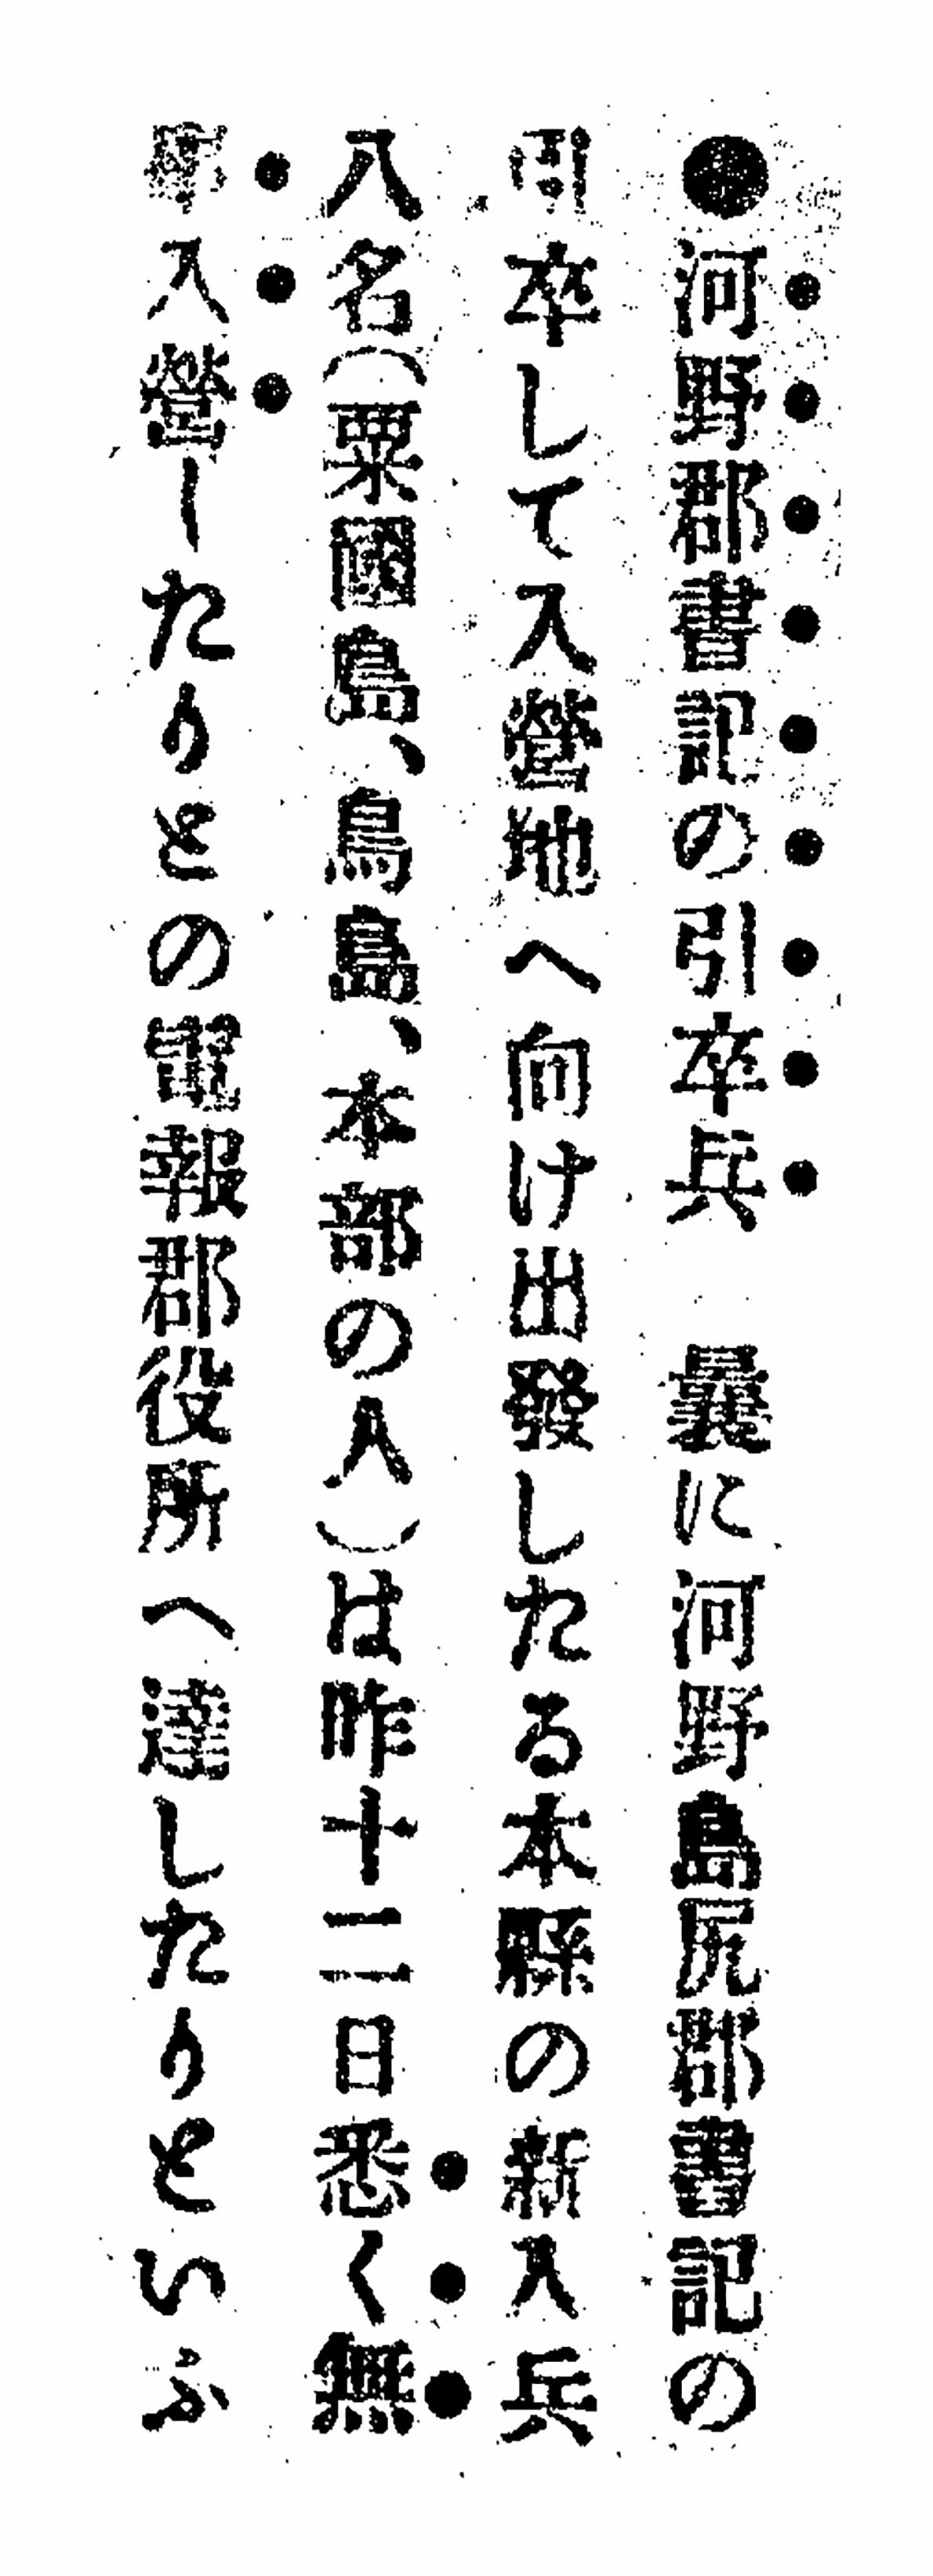 ●河野郡書記の引卒兵　曩に河野島尻郡書記の
引卒して入營地へ向け出發したる本縣の新入兵
八名（粟國島、鳥島、本部の人）は昨十二日悉く無
事入營したりとの電報郡役所へ達したりといふ